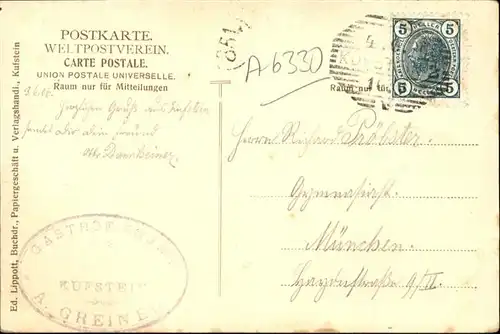 POSTKARTE.
WELTPOSTVEREIN.
CARTE POSTALE.
UNION POSTALE UNIVERSELLE.
Raum nur für Mitteilungen
Herzlichen Gruß aus Kufstein
sendet Dir dein Freund
Otto
Ed. Lippott, Buchdr., Papiergeschäft u. Verlagshandl., Kufstein
GASTHOF
KUFSTEIN
A. GREINER
1851
A6330
5 HELLER 5
5 5
KUFSTEIN
Raum nur für
Herrn Richard Pröbster
Gymnasiast
München
Haydnstraße 9/II